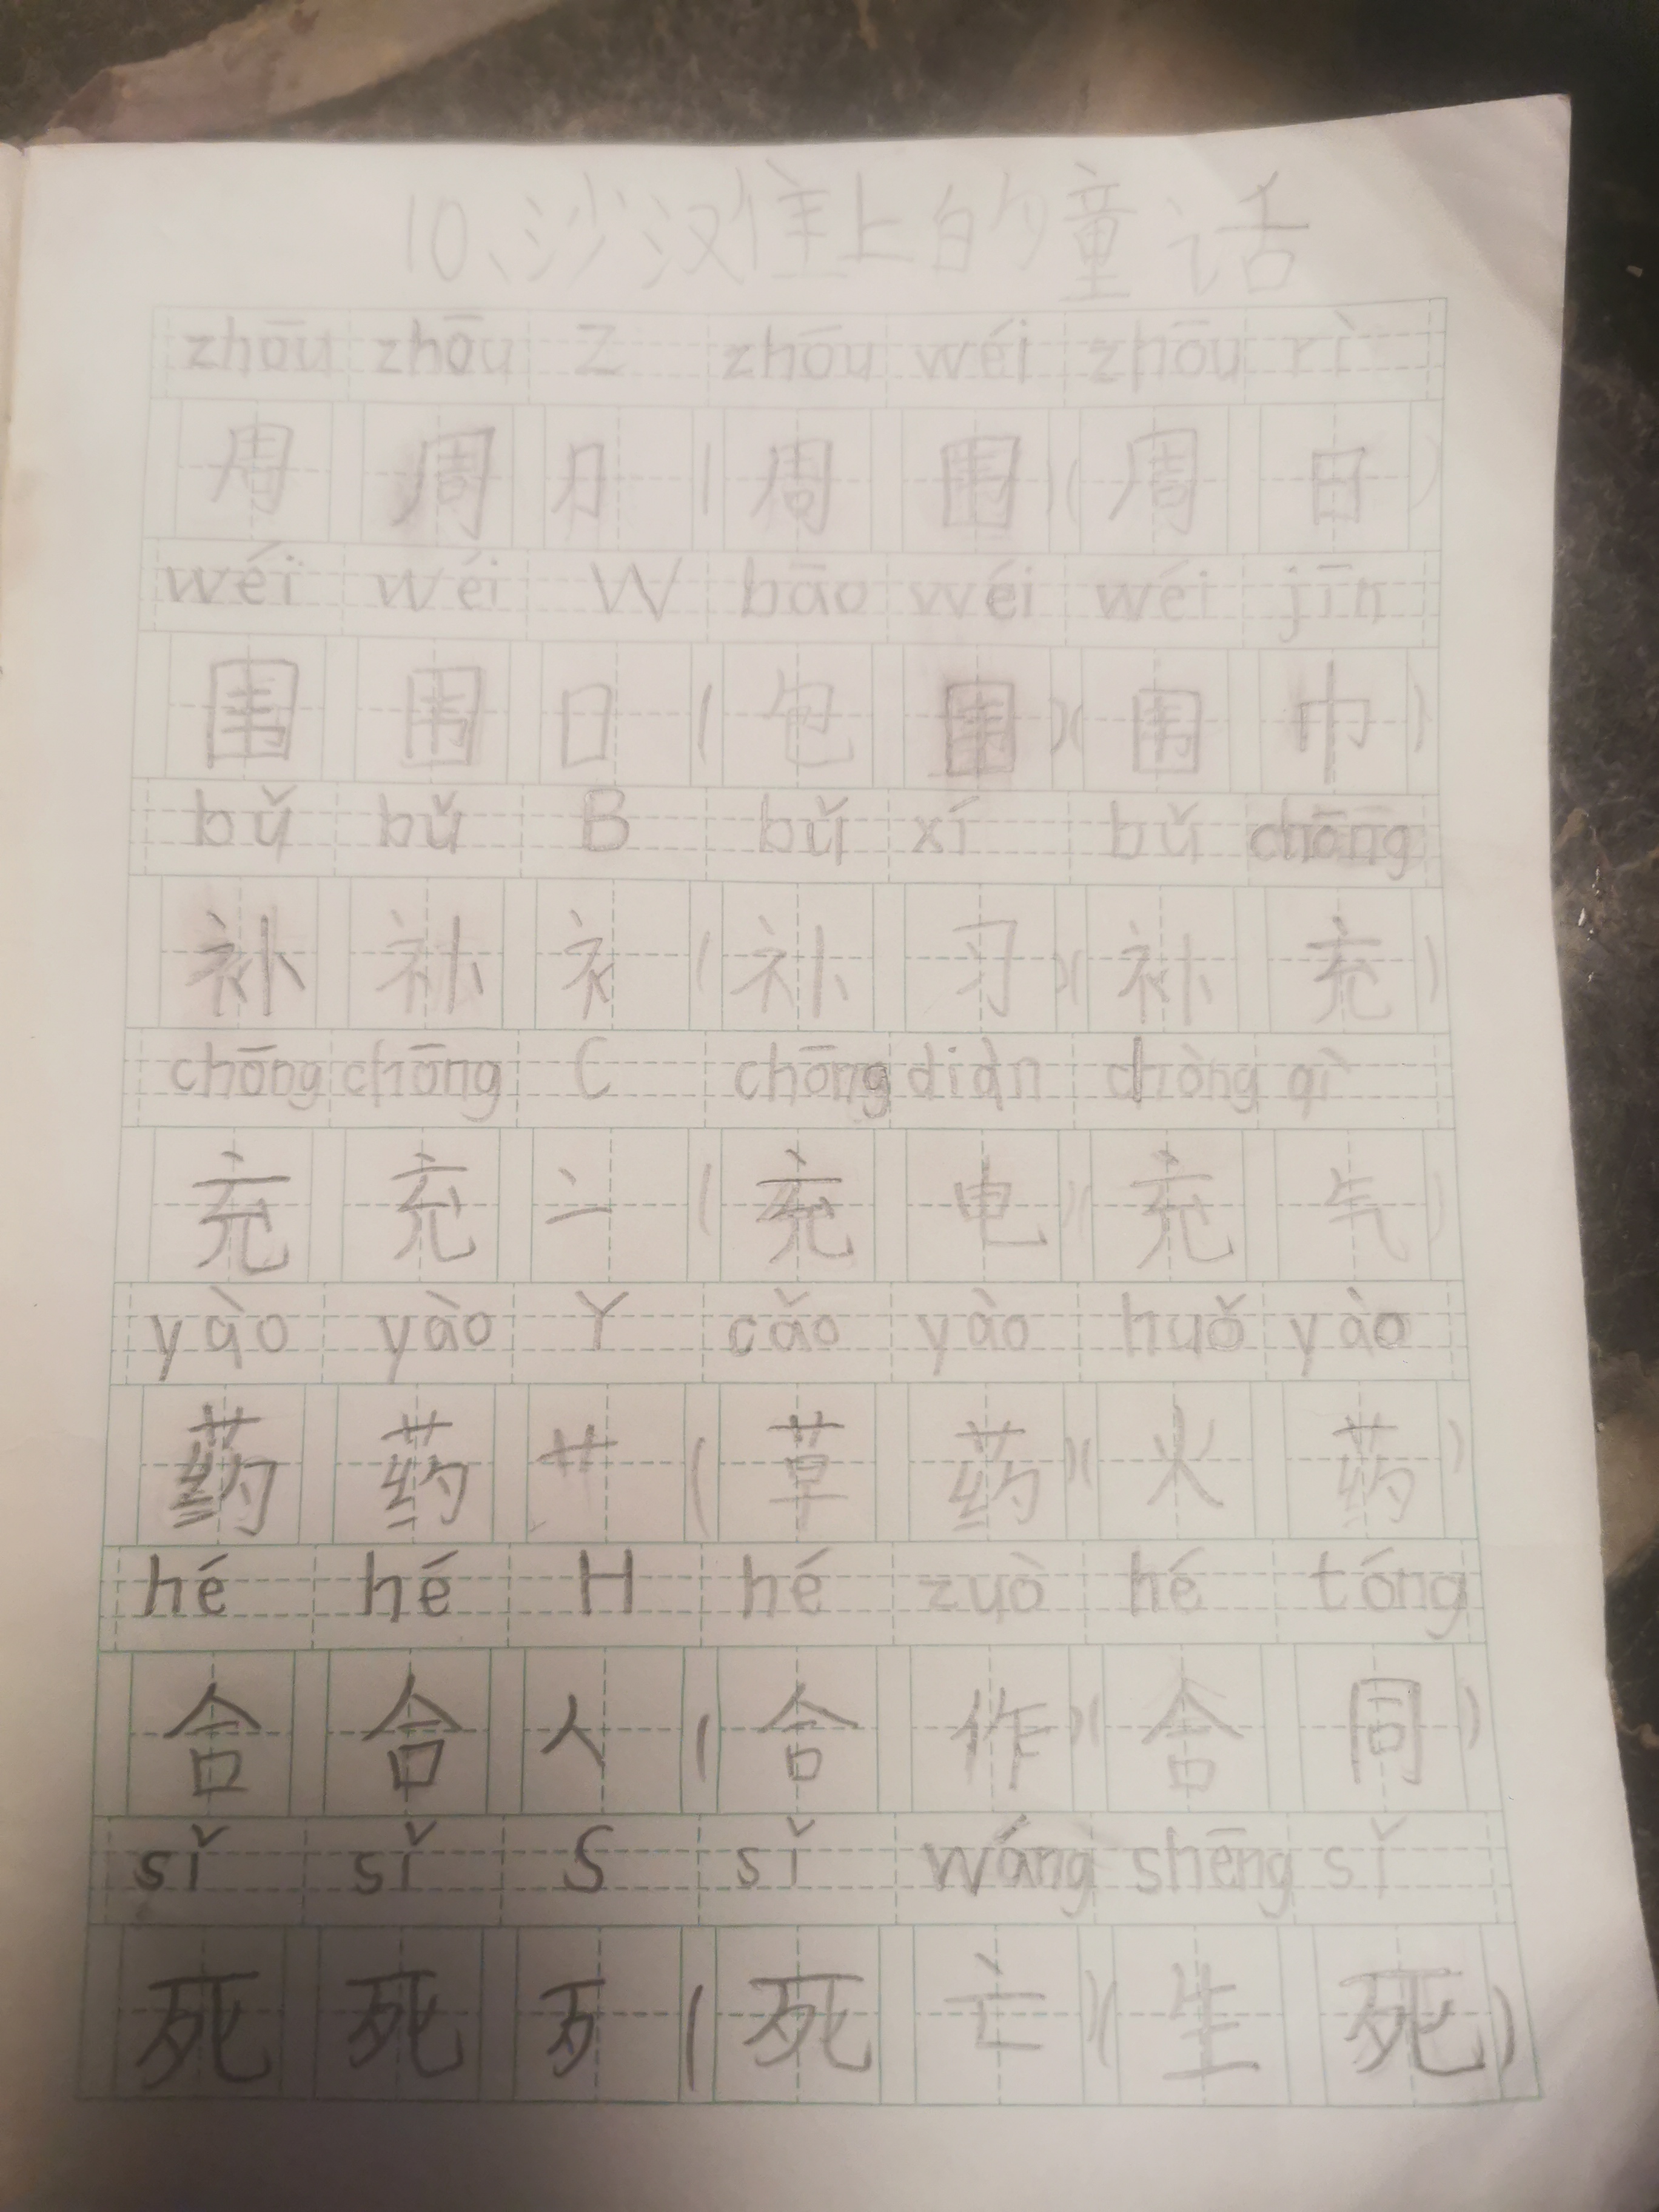 10、沙汉住上的童话
zhōu zhōu Z zhōu wéi zhōu rì
周 周 ⺆ (周 围)(周 日)
wéi wéi W bāo wéi wéi jīn
围 围 口 (包 围)(围 巾)
bǔ bǔ B bǔ xí bǔ chōng
补 补 衤 (补 习)(补 充)
chōng chōng C chōng diàn chòng qì
充 充 亠 (充 电)(充 气)
yào yào Y cǎo yào huǒ yào
药 药 艹 (草 药)(火 药)
hé hé H hé zuò hé tóng
合 合 人 (合 作)(合 同)
sǐ sǐ S sǐ wáng shēng sǐ
死 死 歹 (死 亡)(生 死)